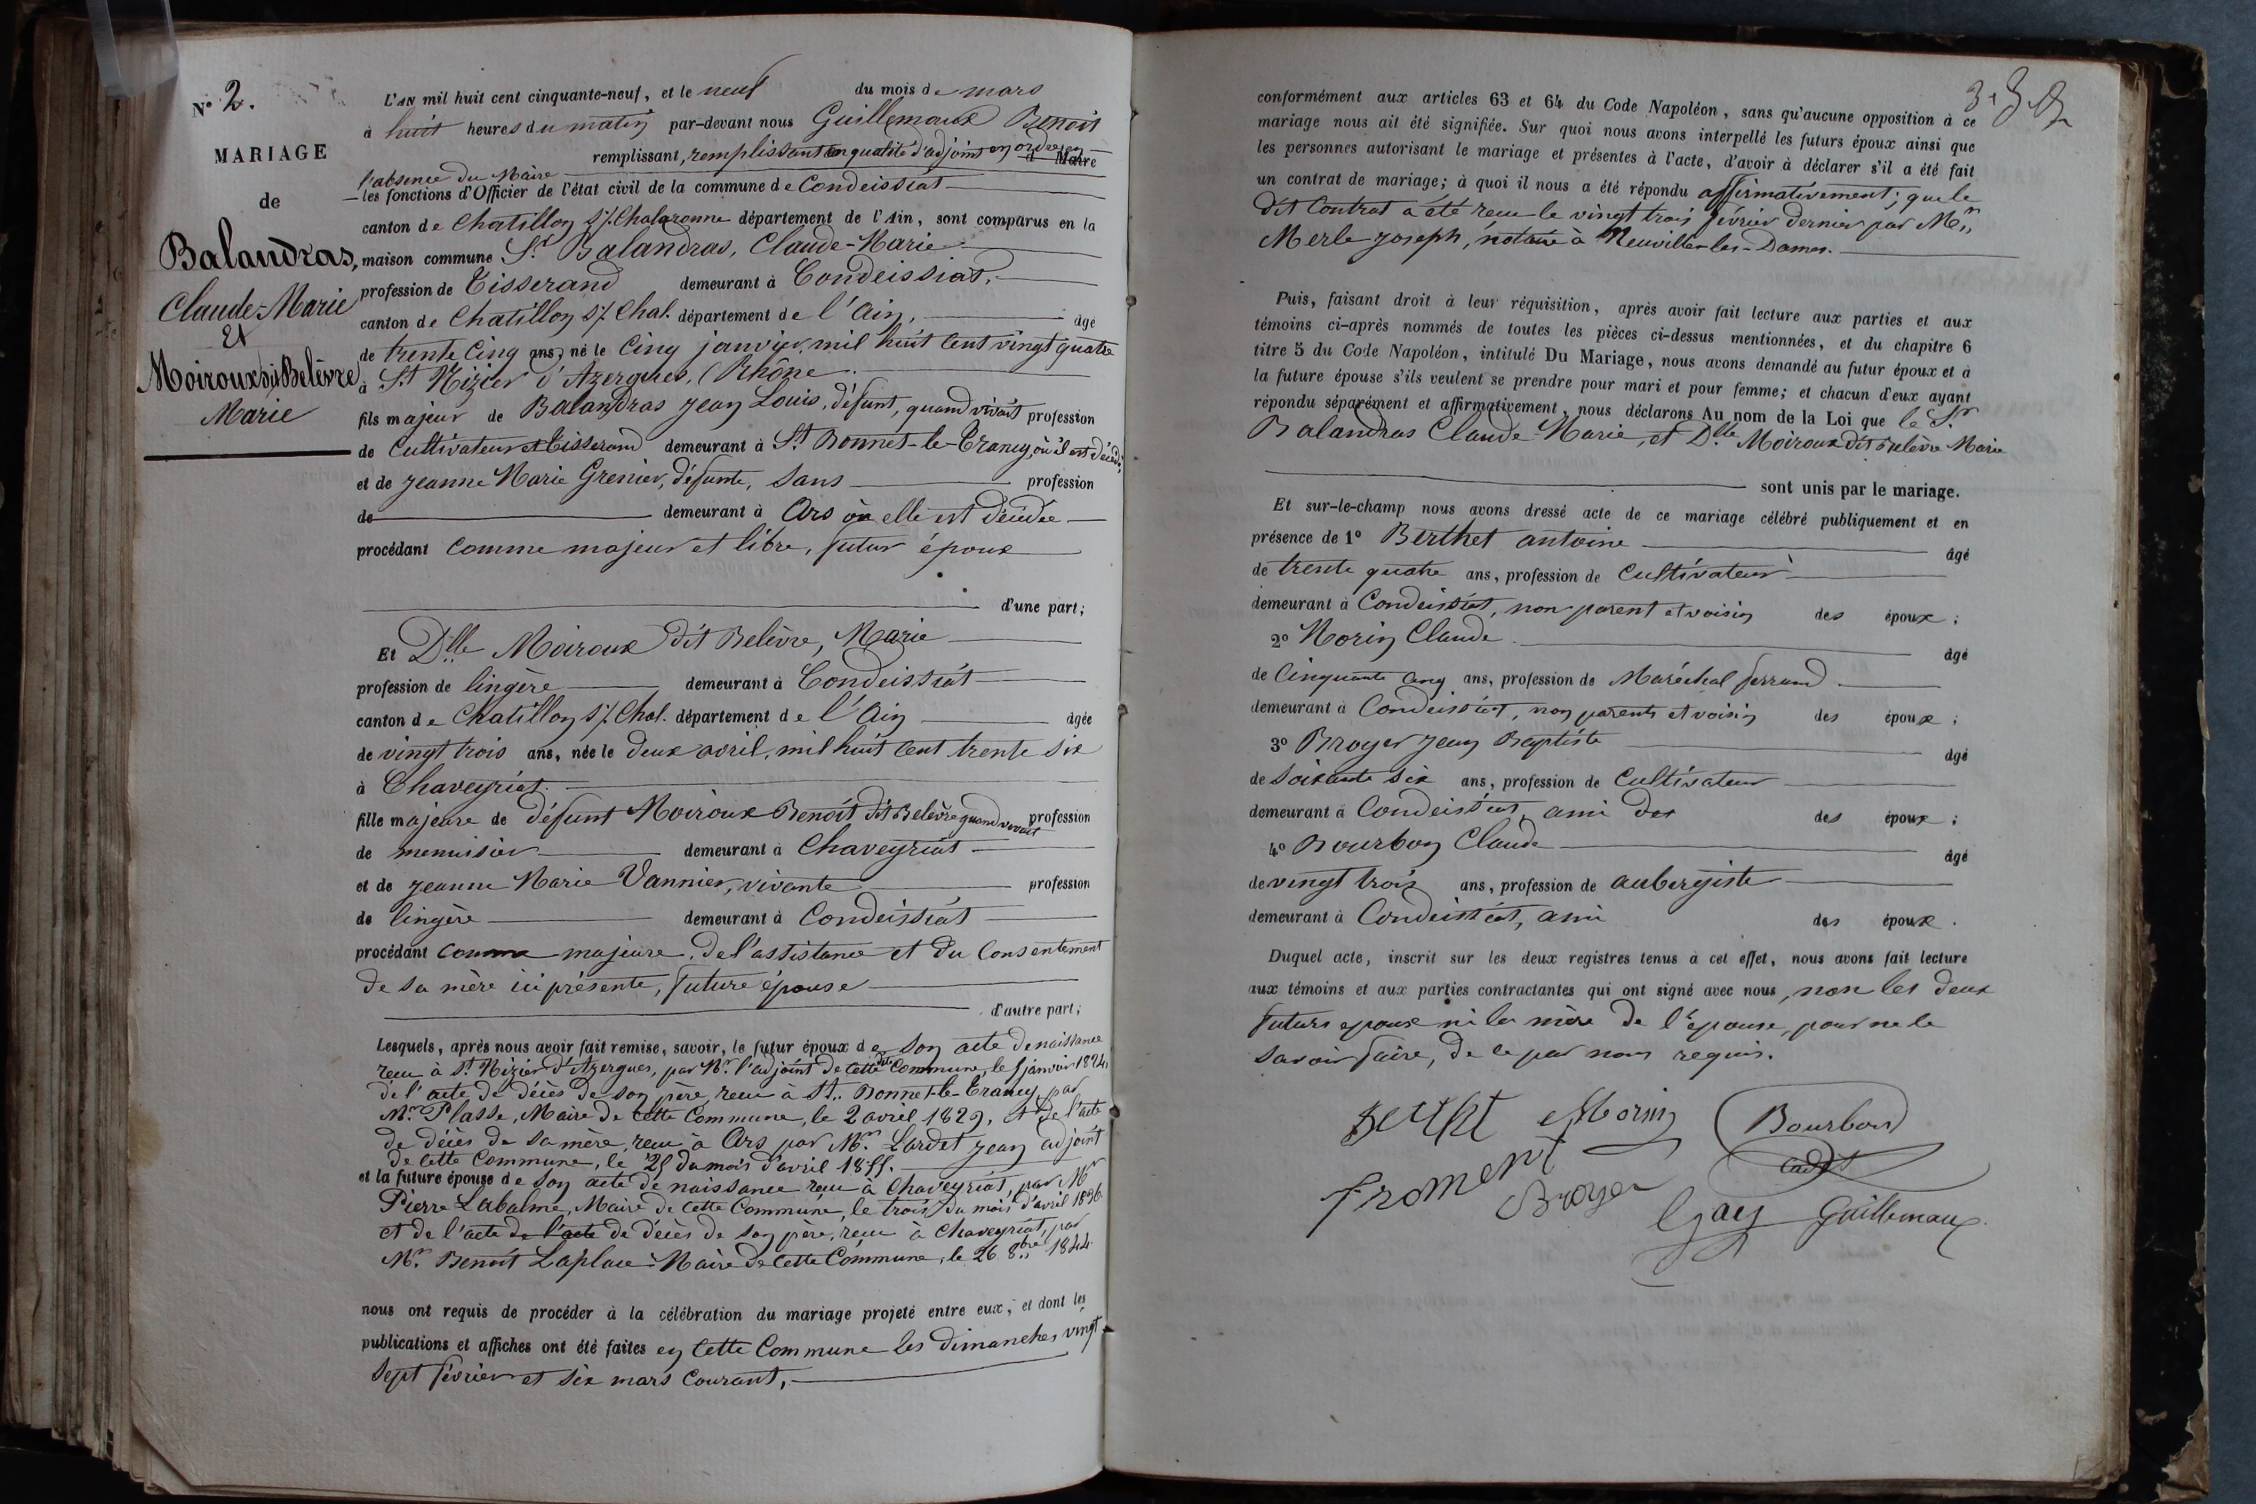 N° 2.
MARIAGE
de
Balandras,
Claude-Marie
Et
Moiroux dit Belèvre
Marie
L'AN mil huit cent cinquante-neuf, et le neuf du mois de mars
à huit heures du matin par-devant nous Guillemaux Benoit
remplissant, remplissant en qualité d'adjoint en Maire
l'absence du Maire
les fonctions d'Officier de l'état civil de la commune de Condeissiat
canton de Chatillon s/. Chalaronne département de l'Ain, sont comparus en la
maison commune Sr. Balandras, Claude-Marie
profession de Tisserand demeurant à Condeissiat,
canton de Chatillon s/. Chal. département de l'Ain, âgé
de trente cinq ans, né le Cinq janvier, mil huit cent vingt quatre
à St. Nizier d'Azergues, (Rhône
fils majeur de Balandras Jean Louis, défunt, quand vivait profession
de Cultivateur et tisserand demeurant à St. Bonnet-le-Troncy, où il est décédé;
et de Jeanne Marie Grenier, défunte, sans profession
de demeurant à Ars où elle est décédée
procédant comme majeur et libre, futur époux
d'une part;
Et Dlle Moiroux dit Belèvre, Marie
profession de lingère demeurant à Condeissiat
canton de Chatillon s/. Chal. département de l'Ain âgée
de vingt trois ans, née le deux avril, mil huit cent trente six
à Chaveyriat
fille majeure de défunt Moiroux Benoît dit Belèvre quand vivait profession
de menuisier demeurant à Chaveyriat
et de Jeanne Marie Vannier, vivante profession
de lingère demeurant à Condeissiat
procédant comme majeure, de l'assistance et du Consentement
de sa mère ici présente, future épouse
d'autre part;
Lesquels, après nous avoir fait remise, savoir, le futur époux de son acte de naissance
reçu à St. Nizier d'Azergues, par Mr. l'adjoint de cette dite Commune, le 5 janvier 1824,
de l'acte de décès de son père, reçu à St. Bonnet-le-Troncy par
Mr. Plasse, Maire de cette Commune, le 2 avril 1829, et de l'acte
de décès de sa mère, reçu à Ars par Mr. Lardet Jean adjoint
de cette Commune, le 25 du mois d'avril 1855.
et la future épouse de son acte de naissance reçu à Chaveyriat, par Mr
Pierre Labalme, Maire de cette Commune, le trois du mois d'avril 1836
et de l'acte de l'acte de décès de son père, reçu à Chaveyriat, par
Mr. Benoît Laplace Maire de cette Commune, le 26 8bre 1844.
nous ont requis de procéder à la célébration du mariage projeté entre eux, et dont les
publications et affiches ont été faites en cette Commune les dimanches vingt
sept février et six mars Courant,
conformément aux articles 63 et 64 du Code Napoléon, sans qu'aucune opposition à ce
mariage nous ait été signifiée. Sur quoi nous avons interpellé les futurs époux ainsi que
les personnes autorisant le mariage et présentes à l'acte, d'avoir à déclarer s'il a été fait
un contrat de mariage; à quoi il nous a été répondu affirmativement; que le
dit Contrat a été reçu le vingt trois février dernier par Mr.
Merle Joseph, notaire à Neuville-les-Dames.
Puis, faisant droit à leur réquisition, après avoir fait lecture aux parties et aux
témoins ci-après nommés de toutes les pièces ci-dessus mentionnées, et du chapitre 6
titre 5 du Code Napoléon, intitulé Du Mariage, nous avons demandé au futur époux et à
la future épouse s'ils veulent se prendre pour mari et pour femme; et chacun d'eux ayant
répondu séparément et affirmativement, nous déclarons Au nom de la Loi que le Sr
Balandras Claude-Marie, et Dlle Moiroux dit Belèvre Marie
sont unis par le mariage.
Et sur-le-champ nous avons dressé acte de ce mariage célébré publiquement et en
présence de 1° Berthet antoine âgé
de trente quatre ans, profession de Cultivateur
demeurant à Condeissiat, non parent et voisin des époux;
2° Morin Claude âgé
de Cinquante cinq ans, profession de Maréchal ferrand
demeurant à Condeissiat, non parents et voisin des époux;
3° Broyer Jean Baptiste âgé
de Soixante six ans, profession de Cultivateur
demeurant à Condeissiat, ami des des époux;
4° Bourbon Claude âgé
de vingt trois ans, profession de aubergiste
demeurant à Condeissiat, ami des époux.
Duquel acte, inscrit sur les deux registres tenus à cet effet, nous avons fait lecture
aux témoins et aux parties contractantes qui ont signé avec nous, non les deux
futurs epoux ni la mère de l'épouse, pour ne le
savoir faire, de ce par nous requis.
Bertht Morin Bourbon
cadet
Froment Broyer Gay Guillemaux